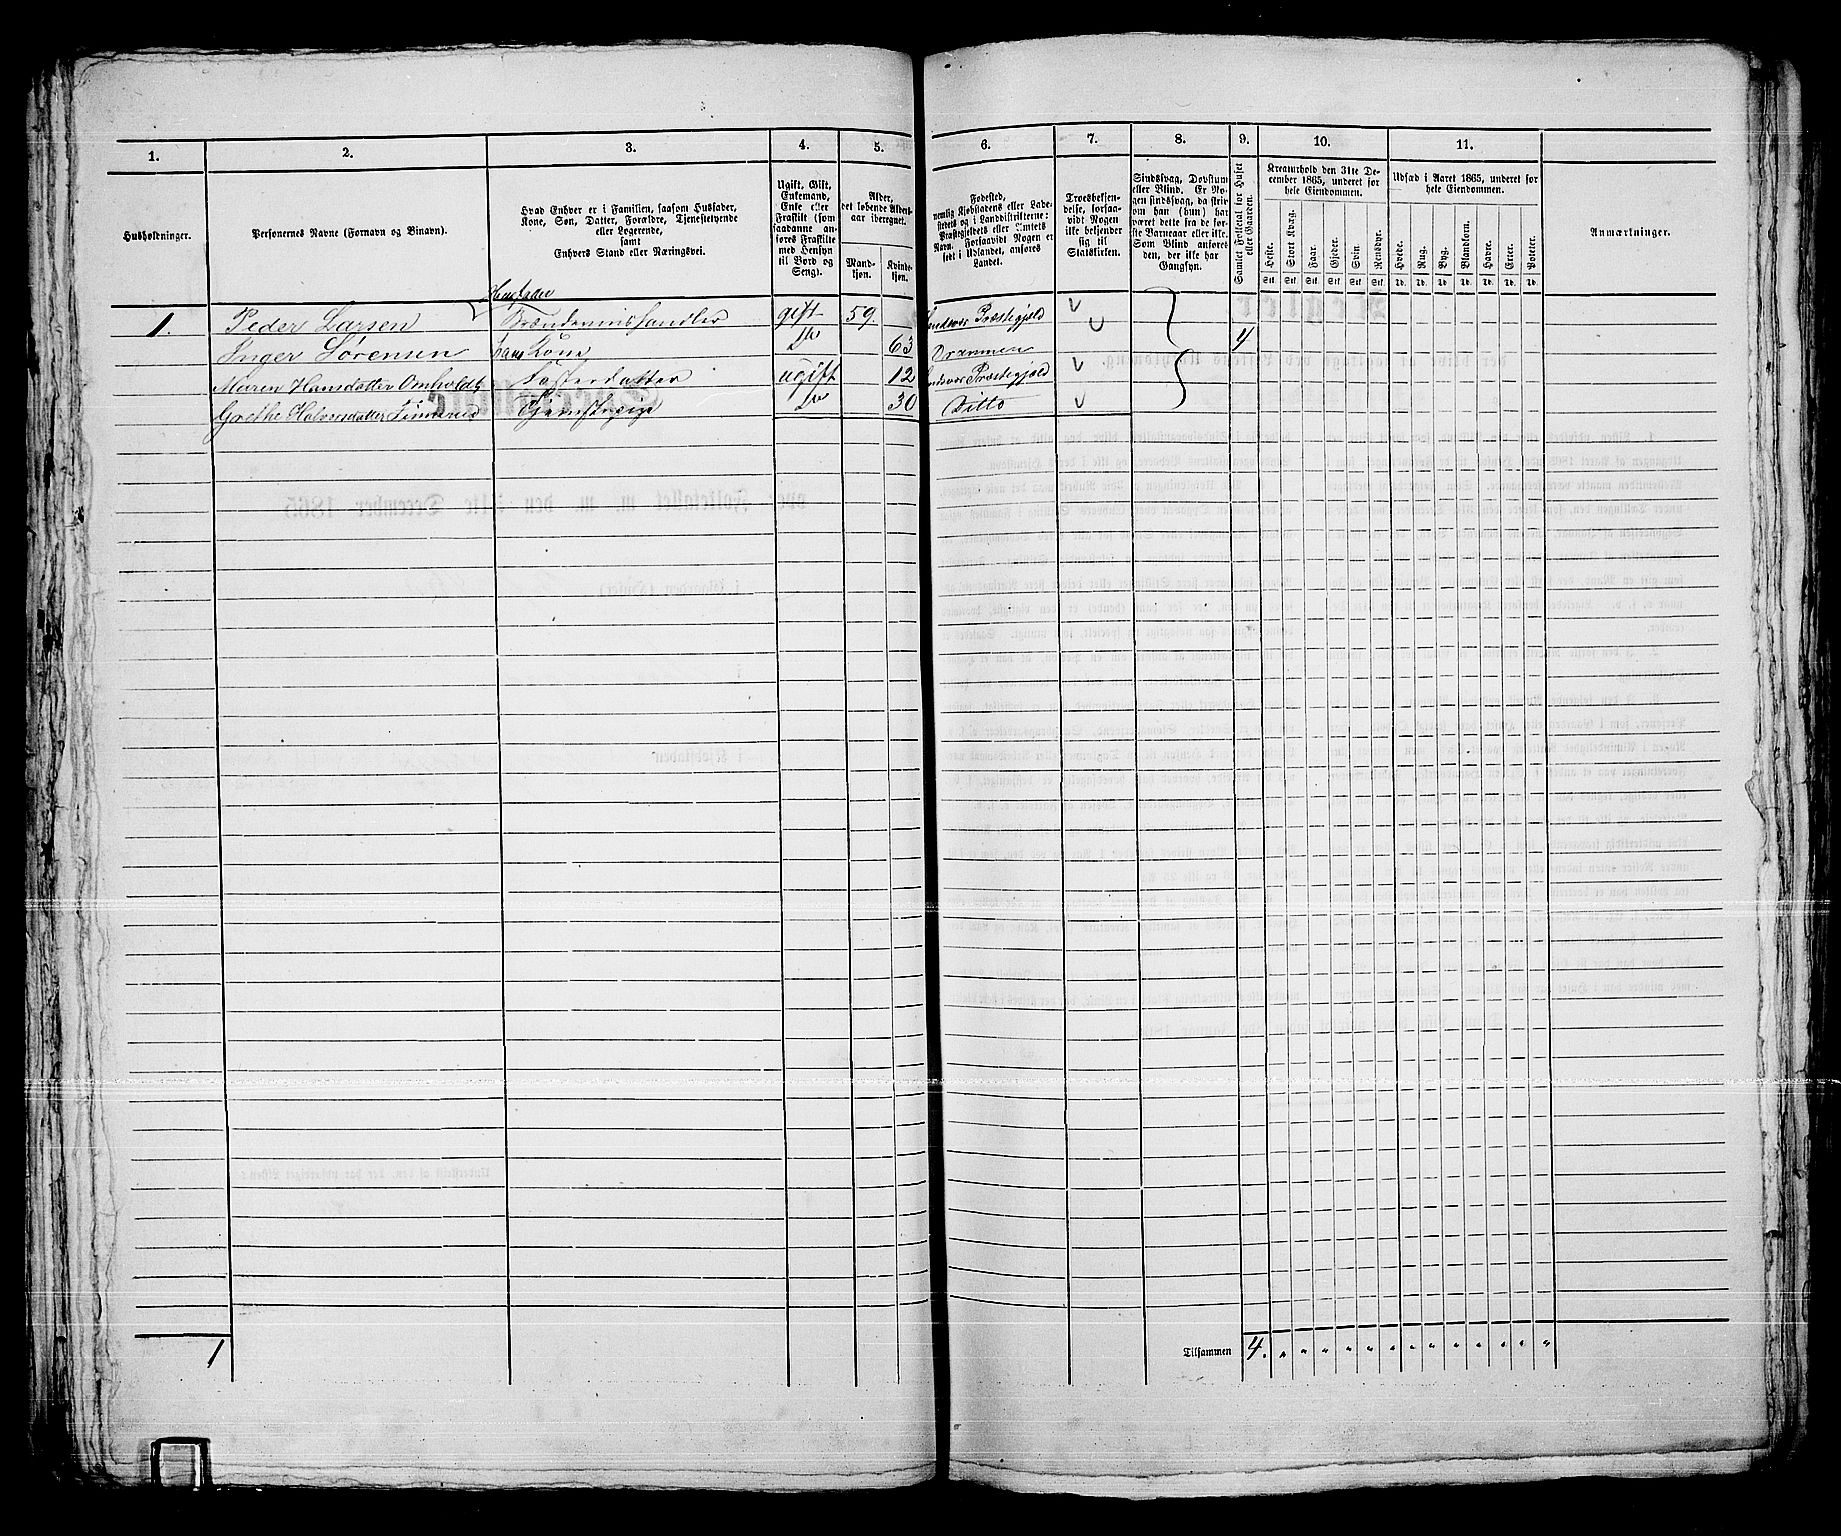 1. 2. 3. 4. 5. 6. 7. 8. 9. 10. 11.
Husholdninger.
Personernes Navne (Fornavn og Binavn).
Hvad Enhver er i Familien, saasom Husfader,
Kone, Søn, Datter, Forældre, Tjenestetyende
eller Logerende,
samt
Enhvers Stand eller Næringsvei.
Ugift, Gift,
Enkemand,
Enke eller
Fraskilt (som
saadanne an-
føres Fraskilte
med Hensyn
til Bord og
Seng).
Alder,
det løbende Alders-
aar iberegnet.
Mand-
kjøn.
Kvinde-
kjøn.
Fødested,
nemlig Kjøbstadens eller Lade-
stedets og i Landdistrikterne:
Præstegjeldets eller Amtets
Navn. Forsaavidt Nogen er
født i Udlandet, anføres
Landet.
Troesbekjen-
delse, forsaa-
vidt Nogen
ikke bekjender
sig til
Statskirken.
Sindssvag, Døvstum
eller Blind. Er No-
gen sindssvag, da skriv
om han (hun) har
været dette fra de før-
ste Barneaar eller ikke.
Som Blind anføres
den, der ikke har
Gangsyn.
Samlet Folketal for Huset
eller Gaarden.
Kreaturhold den 31te De-
cember 1865, underet for
hele Eiendommen.
Heste. Stort Kvæg. Faar. Gjeder. Svin. Rensdyr.
Stk. Stk. Stk. Stk. Stk. Stk.
Udsæd i Aaret 1865, underet for
hele Eiendommen.
Hvede. Rug. Byg. Blandkorn. Havre. Erter. Poteter.
Td. Td. Td. Td. Td. Td. Td.
Anmærkninger.
Husfader
1. Peder Larsen Brændevinshandler gift 59. Præstegjeld
Inger Sørensen hans Kone Do 63 Drammen 4
Maren Hansdatter Omholdt Fosterdatter ugift 12 Præstegjeld
Grethe Halvorsdatter Do 30 Ditto
1 Tilsammen 4. " " " " " " " " " " " " "